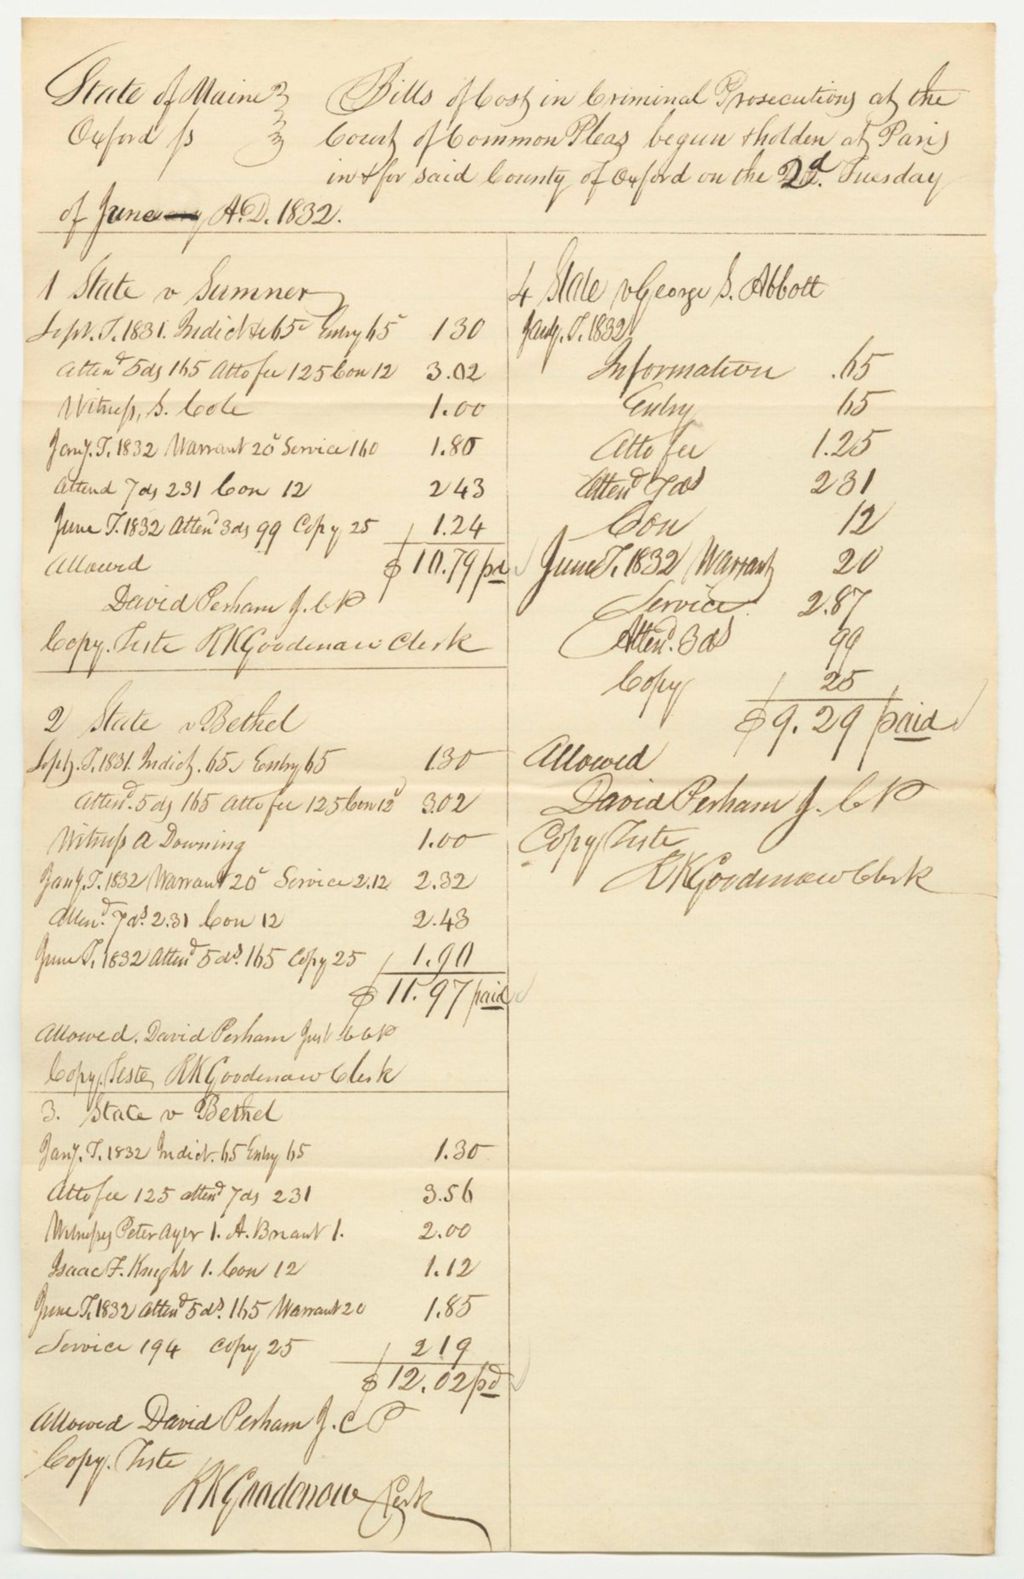 State of Maine
Oxford ss
Bills of Cost in Criminal Prosecutions at the
Court of Common Pleas begun & holden at Paris
in & for said County of Oxford on the 2d. Tuesday
of June A.D. 1832.
1 State v Sumner
Sept. T. 1831. Indict &c 65 Entry 65 1 30
Attend 5 ds 165 Atto fee 125 Con 12 3.02
Witness, S. Cole 1.00
Jany. T. 1832 Warrant 20 Service 160 1.80
Attend 7 ds 231 Con 12 2 43
June T. 1832 Attend 3 ds 99 Copy 25 1.24
Allowed $10.79 pd
David Perham J. C P
Copy. Teste R K Goodenow Clerk
2 State v Bethel
Sept. T. 1831. Indict. 65 Entry 65 1.30
Attend. 5 ds 165 Atto fee 125 Con 12 3.02
Witness A Downing 1.00
Jany. T. 1832 Warrant 20 Service 2.12 2.32
Attend. 7 ds. 2.31 Con 12 2.43
June T. 1832 Attend 5 ds. 165 Copy 25 1.90
$11.97 paid
Allowed. David Perham Just C C P
Copy, Teste, R K Goodenow Clerk
3. State v Bethel
Jany. T. 1832 Indict. 65 Entry 65 1.30
Atto fee 125 attend 7 ds 231 3.56
Witnesses Peter Ayer 1. A. Bryant 1. 2.00
Isaac F. Knight 1. Con 12 1.12
June T. 1832 Attend 5 ds. 165 Warrant 20 1.85
Service 194 Copy 25 2 19
$12.02 pd
Allowed David Perham J. C P
Copy. Teste
R K Goodenow Clerk
4 State v George S. Abbott
Jany. T. 1832
Information .65
Entry 65
Atto fee 1.25
Attend 7 ds 2 31
Con 12
June T. 1832 Warrant 20
Service 2.87
Attend. 3 ds 99
Copy 25
$9.29 paid
Allowed
David Perham J. C P
Copy Teste
R K Goodenow Clerk